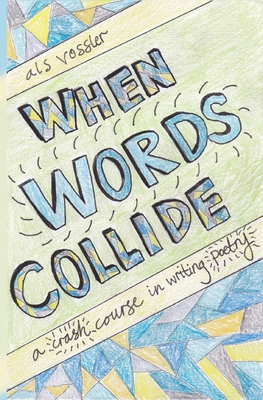 als vossler
WHEN
WORDS
COLLIDE
a crash course in writing poetry